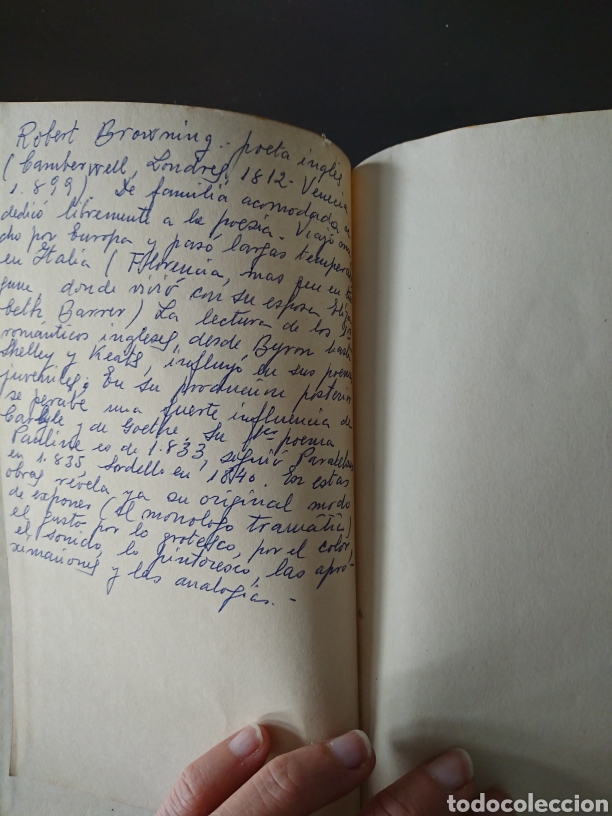 Robert Browning - poeta inglés
(Camberwell, Londres, 1812 - Venecia
1.899) De familia acomodada
dedicó libremente a la poesía - Viajó
cho por Europa y pasó largas tempora
en Italia (Florencia, mas que en
donde vivió con su esposa
beth Barrer) La lectura de los
románticos ingleses, desde Byron hasta
Shelley y Keats, influyó en sus poemas
juveniles; En su producción posterior
se una fuerte influencia de
Carlyle y de Goethe. Su poema
Pauline es de 1.833, siguió
en 1.835, Sordello en 1840. En estas
obras revela ya su original modo
de exponer (el monologo tramatico)
el gusto por lo grotesco, por el color,
el sonido, lo pintoresco, las apro-
ximaciones y las analogías. -
todocoleccion